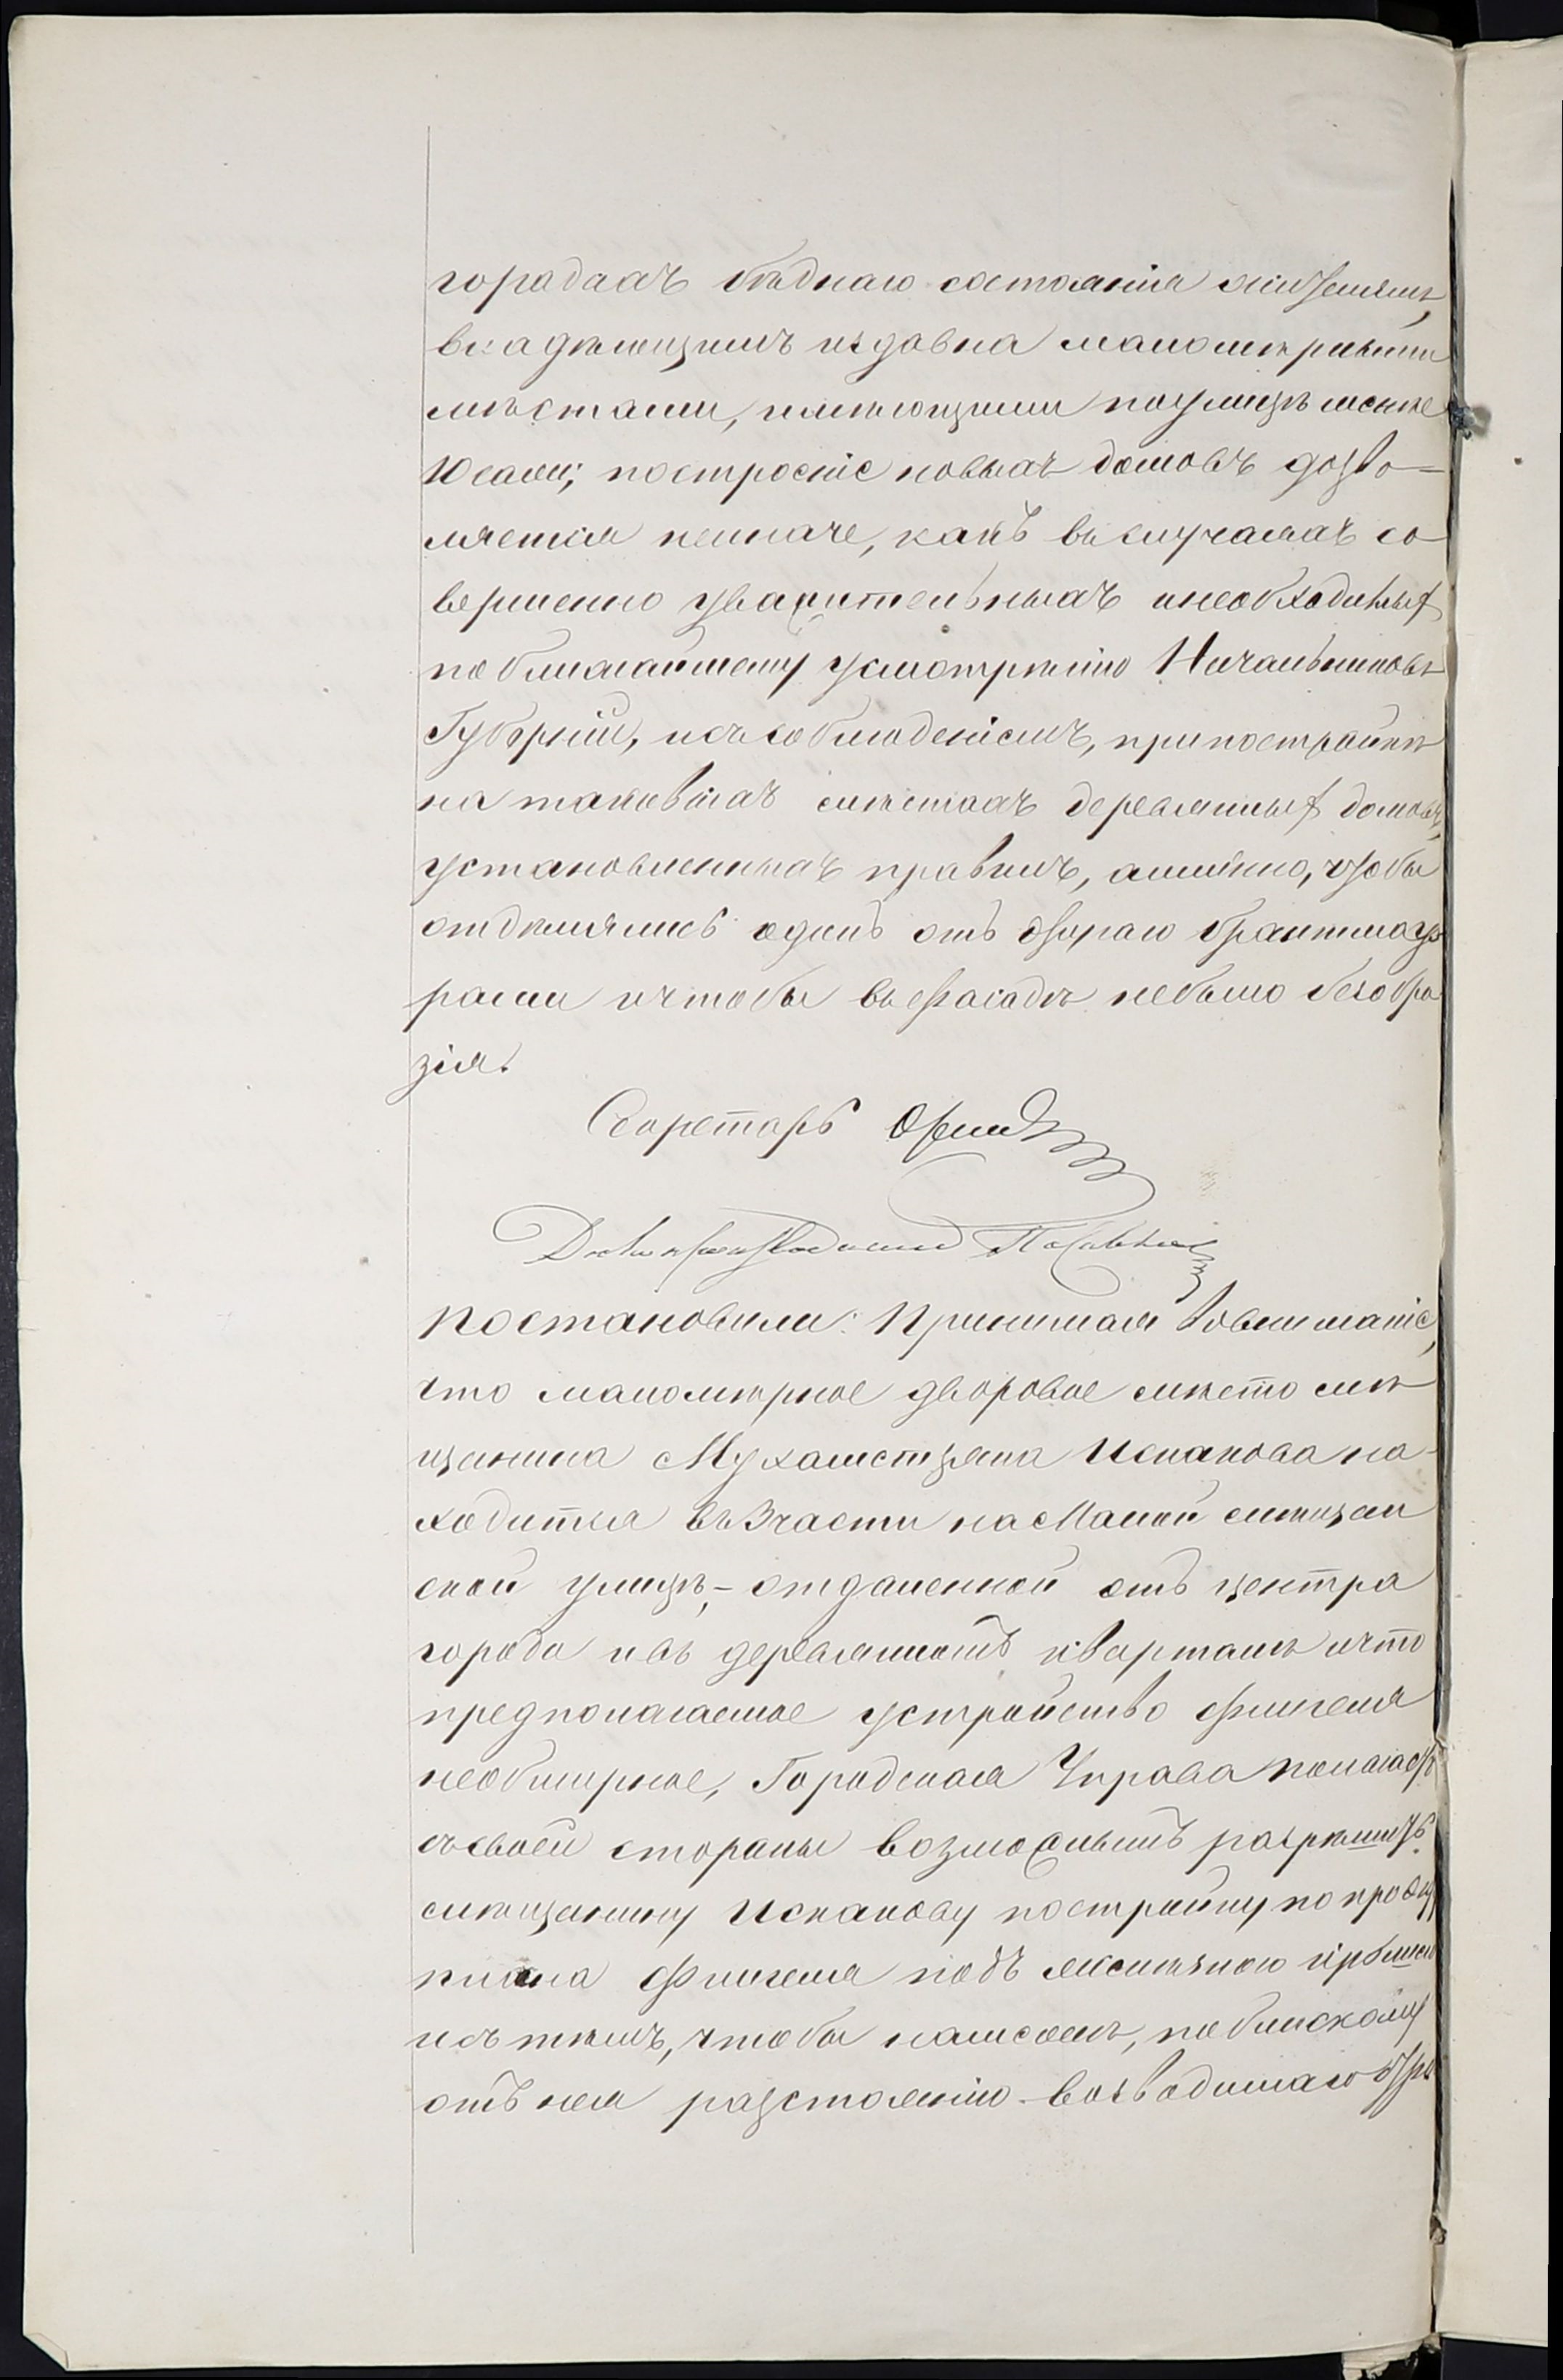 городахъ бѣднаго состоянія жителямъ,
владѣющимъ издавна маломѣрными
мѣстами, имѣющими поулицѣ менѣе
10 саж; построеніе новыхъ домовъ дозво-
ляется неиначе, какъ въ случаяхъ со
вершенно уважительныхъ инеобходимых
по ближайшему усмотрѣнію Начальниковъ
Губерніи, исъ соблюденіемъ, при постройкѣ
на таковыхъ мѣстахъ деревянных домовъ,
установленныхъ правилъ, аимянно, чтобы
отдѣлялись одинъ отъ другаго брантмау
рами ичтобы въ фасадѣ небыло безобра
зія.
Секретарь
Дѣлопроизводитель
постановили: Принимая вовниманіе,
что маломѣрное дворовое мѣсто мѣ
щанина Мухаметзяна Исхакова на-
ходится въ 3 части на Малой мѣщан
ской улицѣ,- отдаленной отъ центра
города ивъ деревянномъ кварталѣ ичто
предполагаемое устройство флигеля
необширное, Городская Управа полагаетъ
съсвоей стороны возможнымъ разрѣшить
мѣщанину Исхакову постройку по проэк
флигеля подъ желѣзною крышею
исъ тѣмъ, чтобы намежѣ, по блискому
отъ нея разстоянію возводимаго